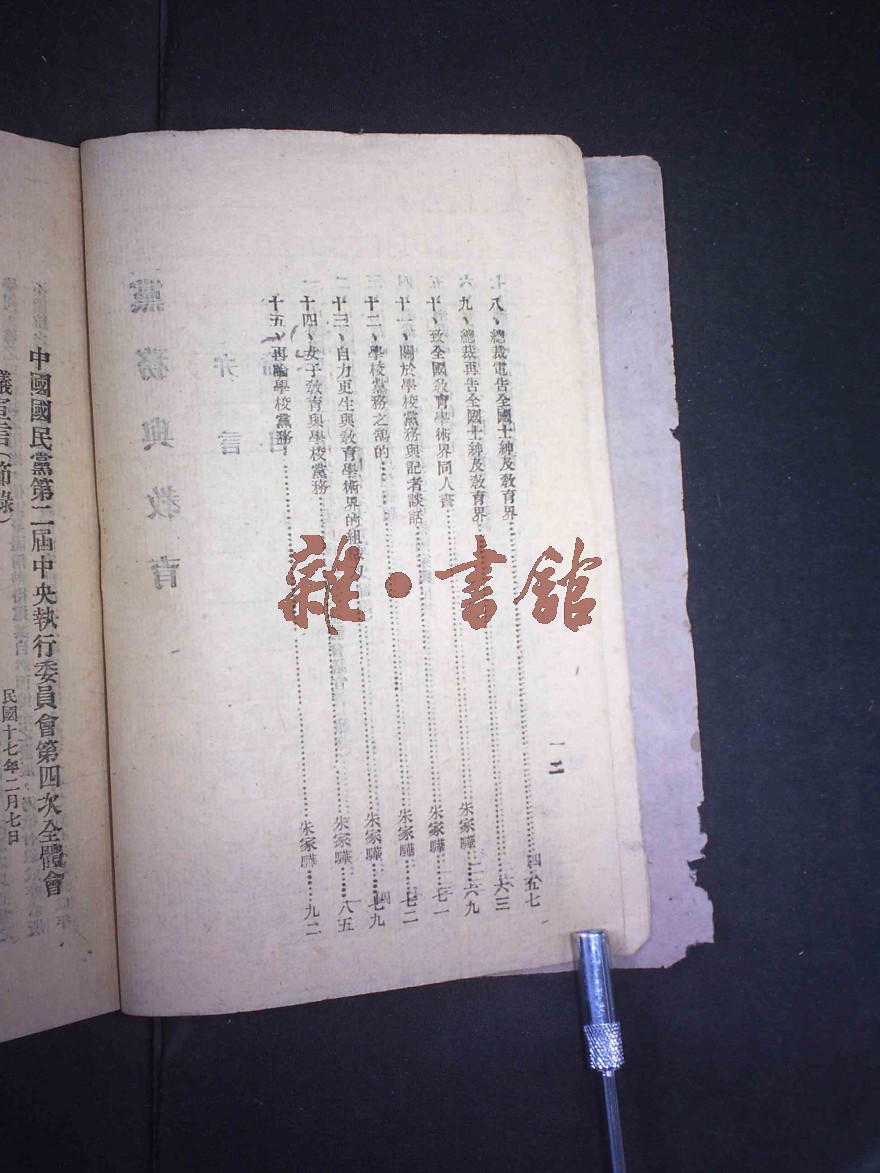 二
八、總裁電告全國士紳及教育界……五七
九、總裁再告全國士紳及教育界……六三
十、致全國教育學術界同人書……朱家驊……六九
十一、關於學校黨務與記者談話……朱家驊……七一
十二、學校黨務之鵠的……朱家驊……七二
十三、自力更生與教育學術界的組……朱家驊……七九
十四、女子教育與學校黨務……朱家驊……八五
十五、再論學校黨務……朱家驊……九二
弁言
黨務與教育
中國國民黨第二屆中央執行委員會第四次全體會
議宣言(節錄)
民國十七年二月七日
雜·書館